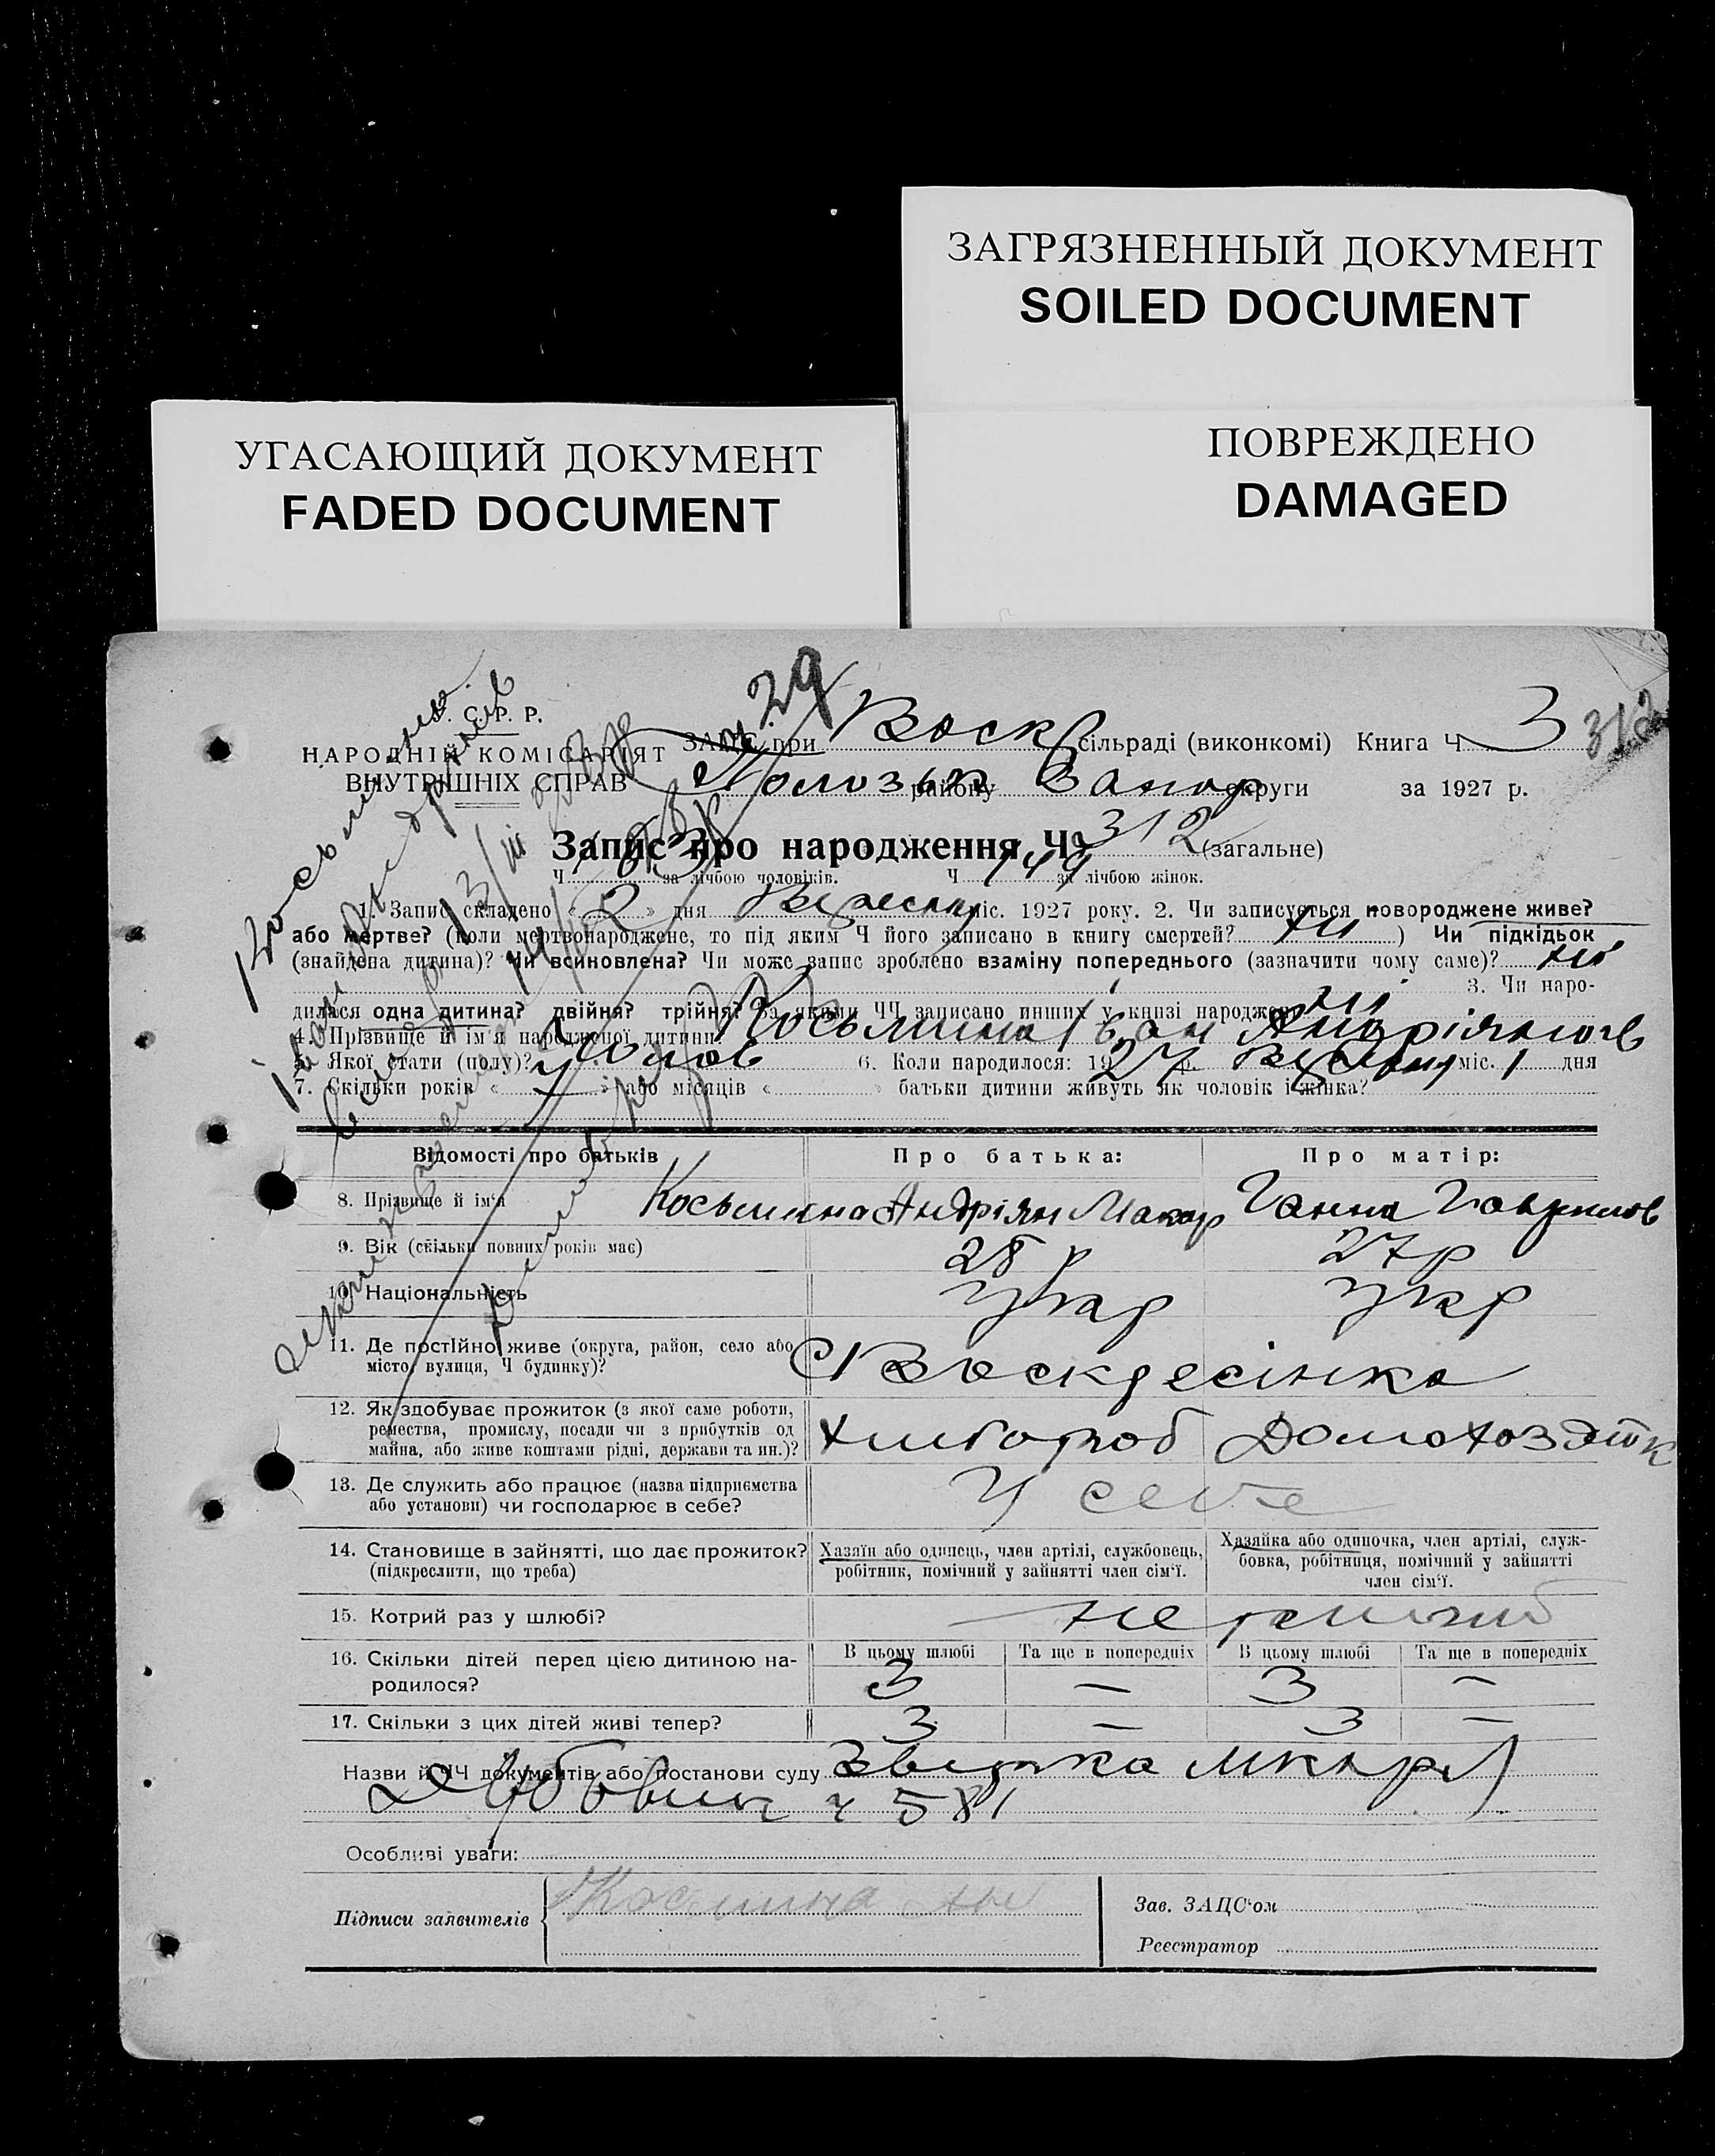 ЗАГРЯЗНЕННЫЙ ДОКУМЕНТ
SOILED DOCUMENT
УГАСАЮЩИЙ ДОКУМЕНТ
FADED DOCUMENT
ПОВРЕЖДЕНО
DAMAGED
У. С. Р. Р.
НАРОДНІЙ КОМІСАРІЯТ
ВНУТРІШНІХ СПРАВ
29
312
ЗАГС при Воскр сільраді (виконкомі) Книга Ч 3
району Запор округи за 1927 р.
Запис про народження Ч 312 (загальне)
Ч 163 за лічбою чоловіків. Ч 149 за лічбою жінок.
1. Запис складено « 2 » дня Вересня міс. 1927 року. 2. Чи записується новороджене живе?
або мертве? (коли мертвонароджене, то під яким Ч його записано в книгу смертей? ні ) Чи підкідьок
(знайдена дитина)? Чи всиновлена? Чи може запис зроблено взаміну попереднього (зазначити чому саме)? ні
3. Чи наро-
дилася одна дитина? двійня? трійня? За якими ЧЧ записано инших у книзі народжен. ні
4. Прізвище й ім'я народженої дитини. Косьмина Іван Андріянов
5. Якої стати (полу)? Чолов 6. Коли народилося: 1927 р. Вересня міс. 1 дня
7. Скільки років « » або місяців « » батьки дитини живуть як чоловік і жінка?
Відомості про батьків Про батька: Про матір:
8. Прізвище й ім'я Косьмина Андріян Макар Ганна Гаврилов
9. Вік (скільки повних років має) 28 р 27 р
10. Національність Укр Укр
11. Де постійно живе (округа, район, село або
місто, вулиця, Ч будинку)? С Воскресінка
12. Як здобуває прожиток (з якої саме роботи,
ремества, промислу, посади чи з прибутків од
майна, або живе коштами рідні, держави та ин.)? Хлібороб
13. Де служить або працює (назва підприємства
або установи) чи господарює в себе? У себе
14. Становище в зайнятті, що дає прожиток?
(підкреслити, що треба)
Хазяїн або одинець, член артілі, службовець,
робітник, помічний у зайнятті член сім'ї.
Хазяйка або одиночка, член артілі, служ-
бовка, робітниця, помічний у зайнятті
член сім'ї.
15. Котрий раз у шлюбі?
16. Скільки дітей перед цією дитиною на-
родилося?
В цьому шлюбі Та ще в попередніх В цьому шлюбі Та ще в попередніх
3 — 3 —
17. Скільки з цих дітей живі тепер? 3 — 3 —
Назви й ЧЧ документів або постанови суду
ч 581
Особливі уваги:
Підписи заявителів Космина
Зав. ЗАЦС'ом
Реєстратор